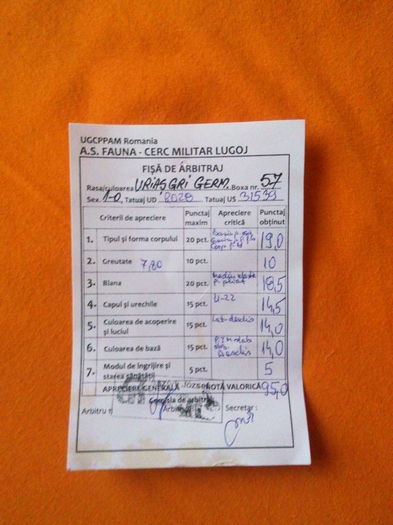 UGCPPAM Romania
A.S. FAUNA - CERC MILITAR LUGOJ
FIŞĂ DE ARBITRAJ
Rasa/culoarea URIAS GRI GERM. Boxa nr. 57
Sex 1-0 Tatuaj UD Tatuaj US
Criterii de apreciere Punctaj maxim Apreciere critică Punctaj obţinut
1. Tipul şi forma corpului 20 pct. 19,0
2. Greutate 7,80 10 pct. 10
3. Blana 20 pct. 18,5
4. Capul şi urechile 15 pct. U-22 14,5
5. Culoarea de acoperire şi luciul 15 pct. 14,0
6. Culoarea de bază 15 pct. 14,0
7. Modul de îngrijire şi starea sănătăţii 5 pct. 5
APRECIERE GENERALĂ NOTĂ VALORICĂ 95,0
József
Comisia de arbitraj
Arbitru Arbitru Secretar :